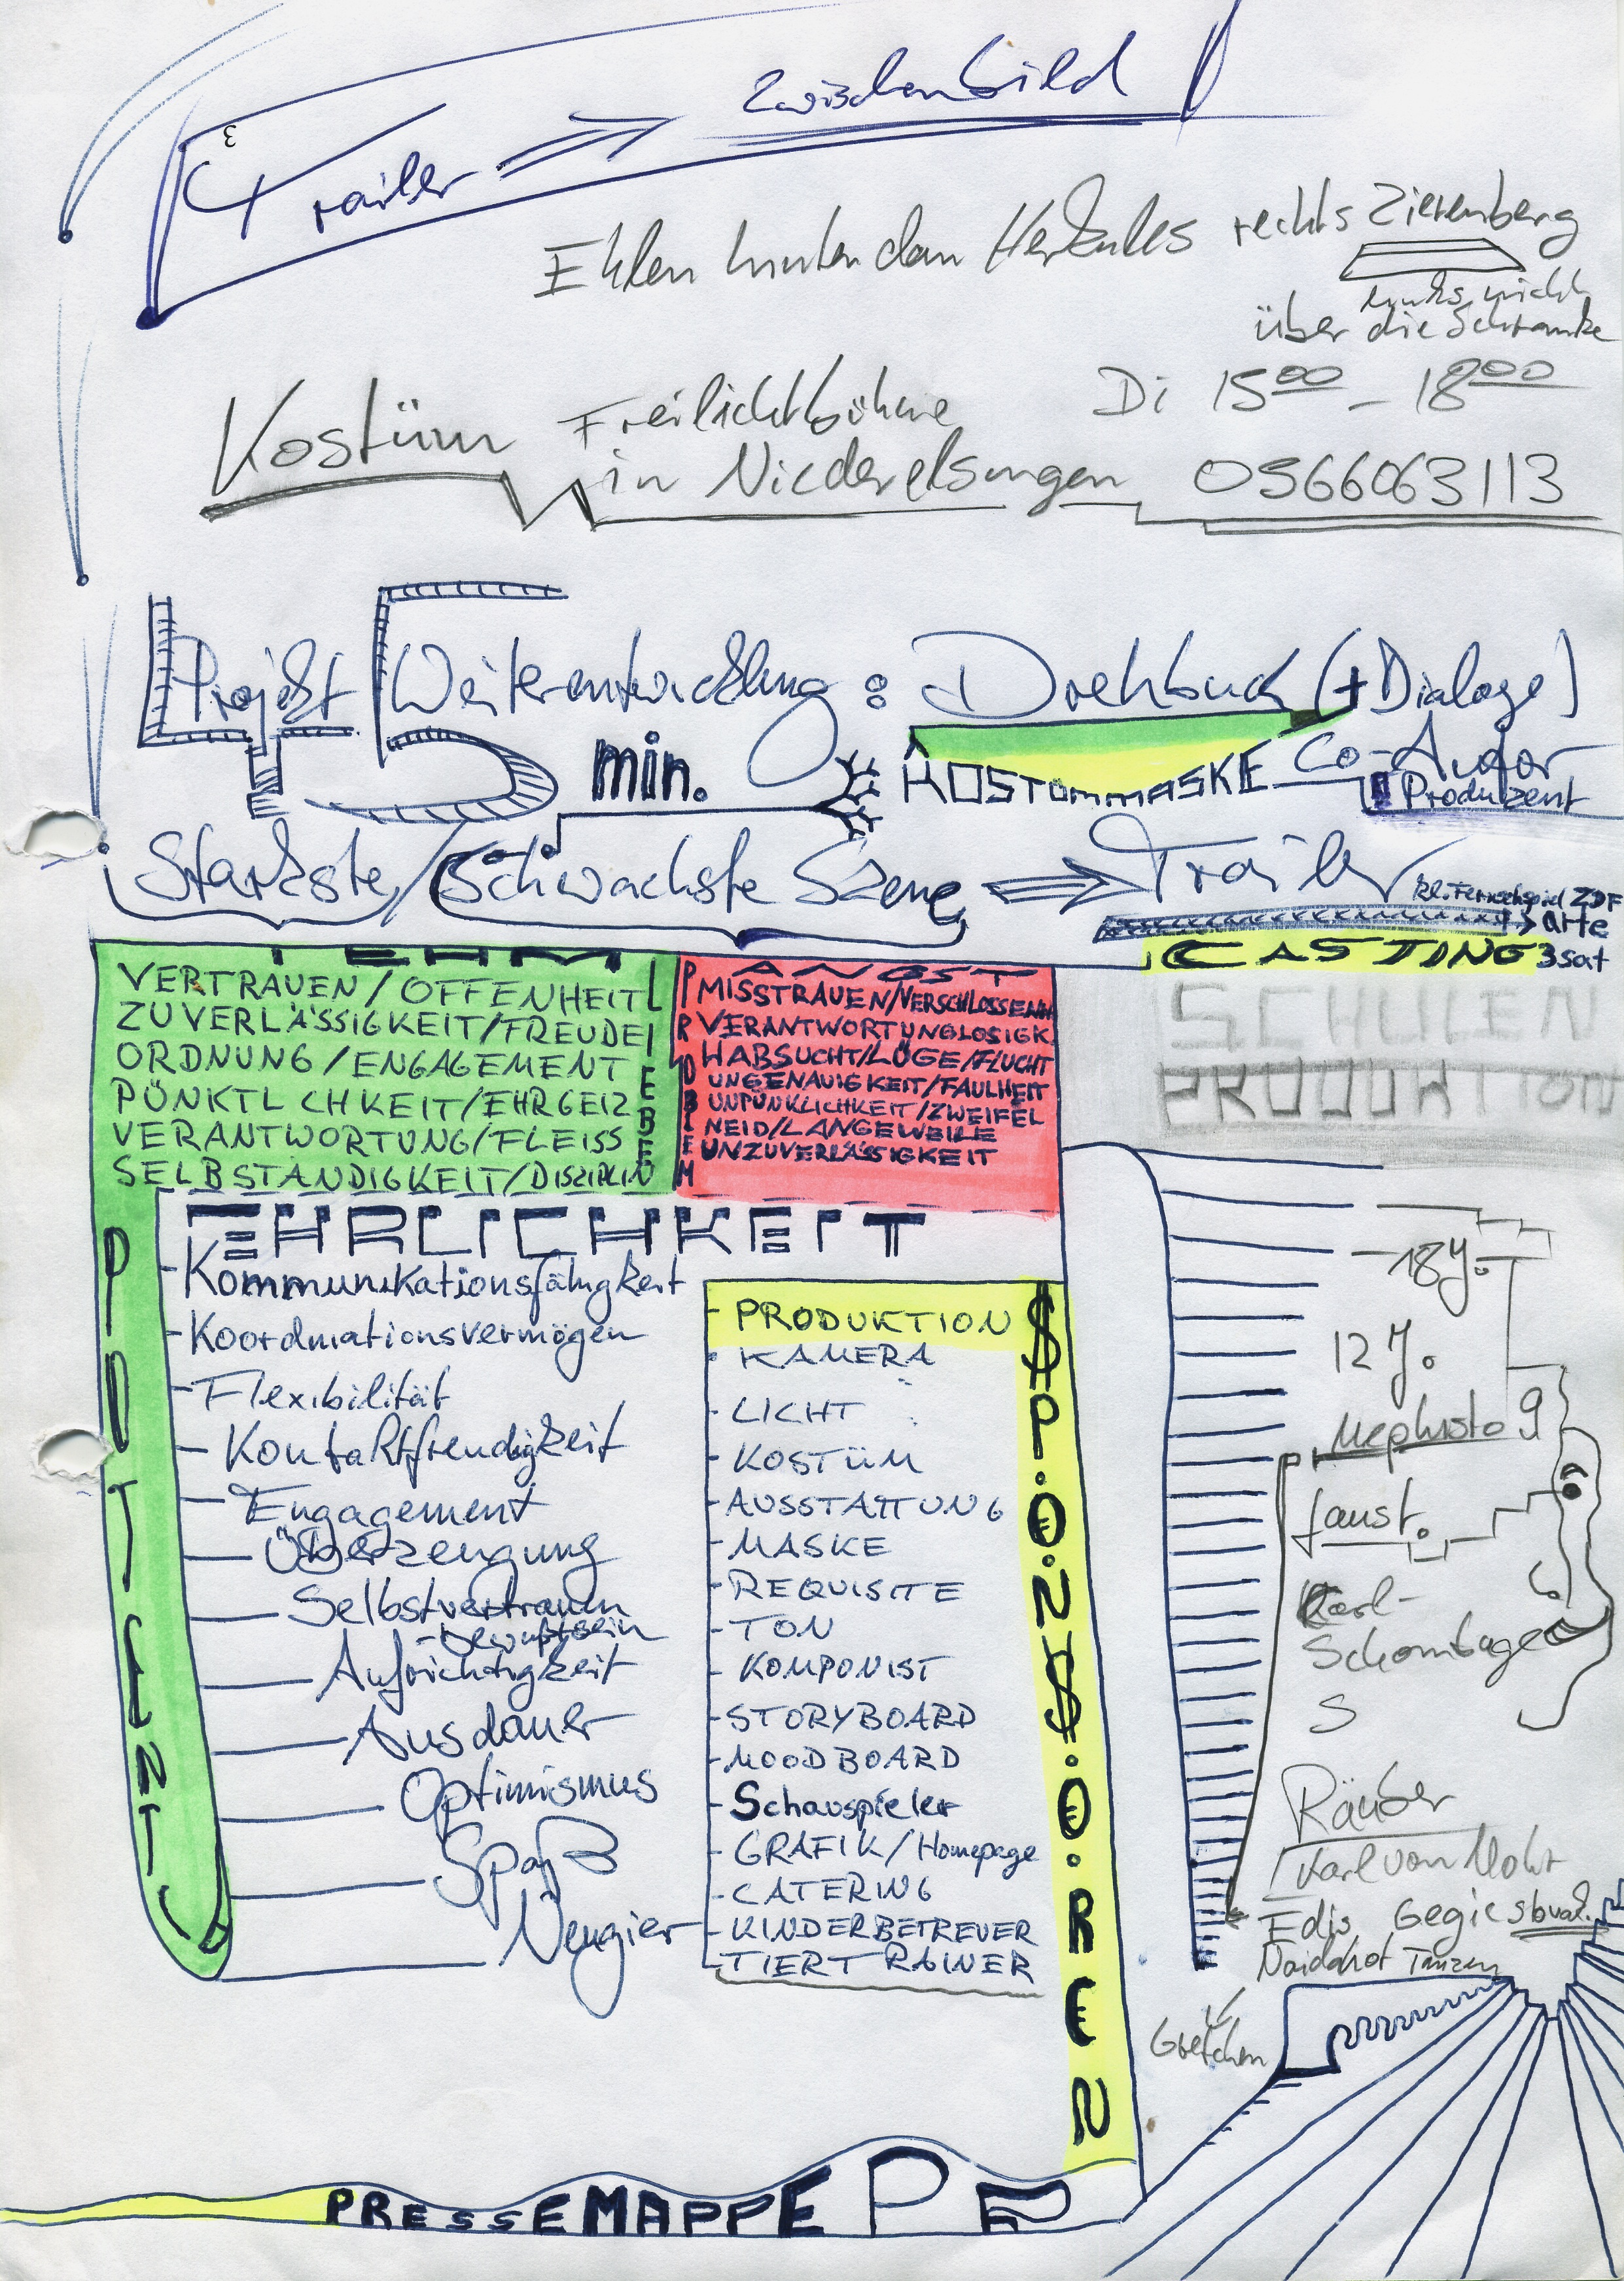 Trailer ⇒ Zwischenbild
Ehlen hinter dem Herkules rechts Zierenberg
links nicht
über die Schranke
Kostüm Freilichtbühne Di 15⁰⁰ – 18⁰⁰
in Niederelsungen 0566063113
Projekt Weiterentwicklung : Drehbuch (+ Dialoge)
45 min. KOSTÜMMASKE Co-Autor
Produzent
Stärkste / Schwächste Szene ⇒ Trailer
kl. Fernsehspiel ZDF
arte
CASTING 3sat
SCHULEN
PRODUKTION
TEAM
VERTRAUEN / OFFENHEIT
ZUVERLÄSSIGKEIT/FREUDE
ORDNUNG / ENGAGEMENT
PÜNKTLICHKEIT/EHRGEIZ
VERANTWORTUNG/FLEISS
SELBSTÄNDIGKEIT/DISZIPLIN
LIEBE
PROBLEM
ANGST
MISSTRAUEN/VERSCHLOSSENH
VERANTWORTUNGLOSIGK
HABSUCHT/LÜGE/FLUCHT
UNGENAUIGKEIT/FAULHEIT
UNPÜNKLICHKEIT/ZWEIFEL
NEID/LANGEWEILE
UNZUVERLÄSSIGKEIT
EHRLICHKEIT
POTENZ
Kommunikationsfähigkeit
Koordinationsvermögen
Flexibilität
Kontaktfreudigkeit
Engagement
Überzeugung
Selbstvertrauen
-bewußtsein
Aufrichtigkeit
Ausdauer
Optimismus
Spaß
Neugier
PRODUKTION
KAMERA
LICHT
KOSTÜM
AUSSTATTUNG
MASKE
REQUISITE
TON
KOMPONIST
STORYBOARD
MOODBOARD
Schauspieler
GRAFIK / Homepage
CATERING
KINDERBETREUER
TIERTRAINER
$P.O.N.$.O.R.E.N
18 J.
12 J.
Mephisto
Faust.
Räuber
Karl von Mohr
Edis
Tanzen
Gretchen
PRESSEMAPPE